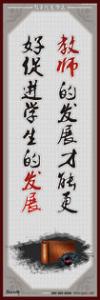 教师的发展才能更
好促进学生的发展